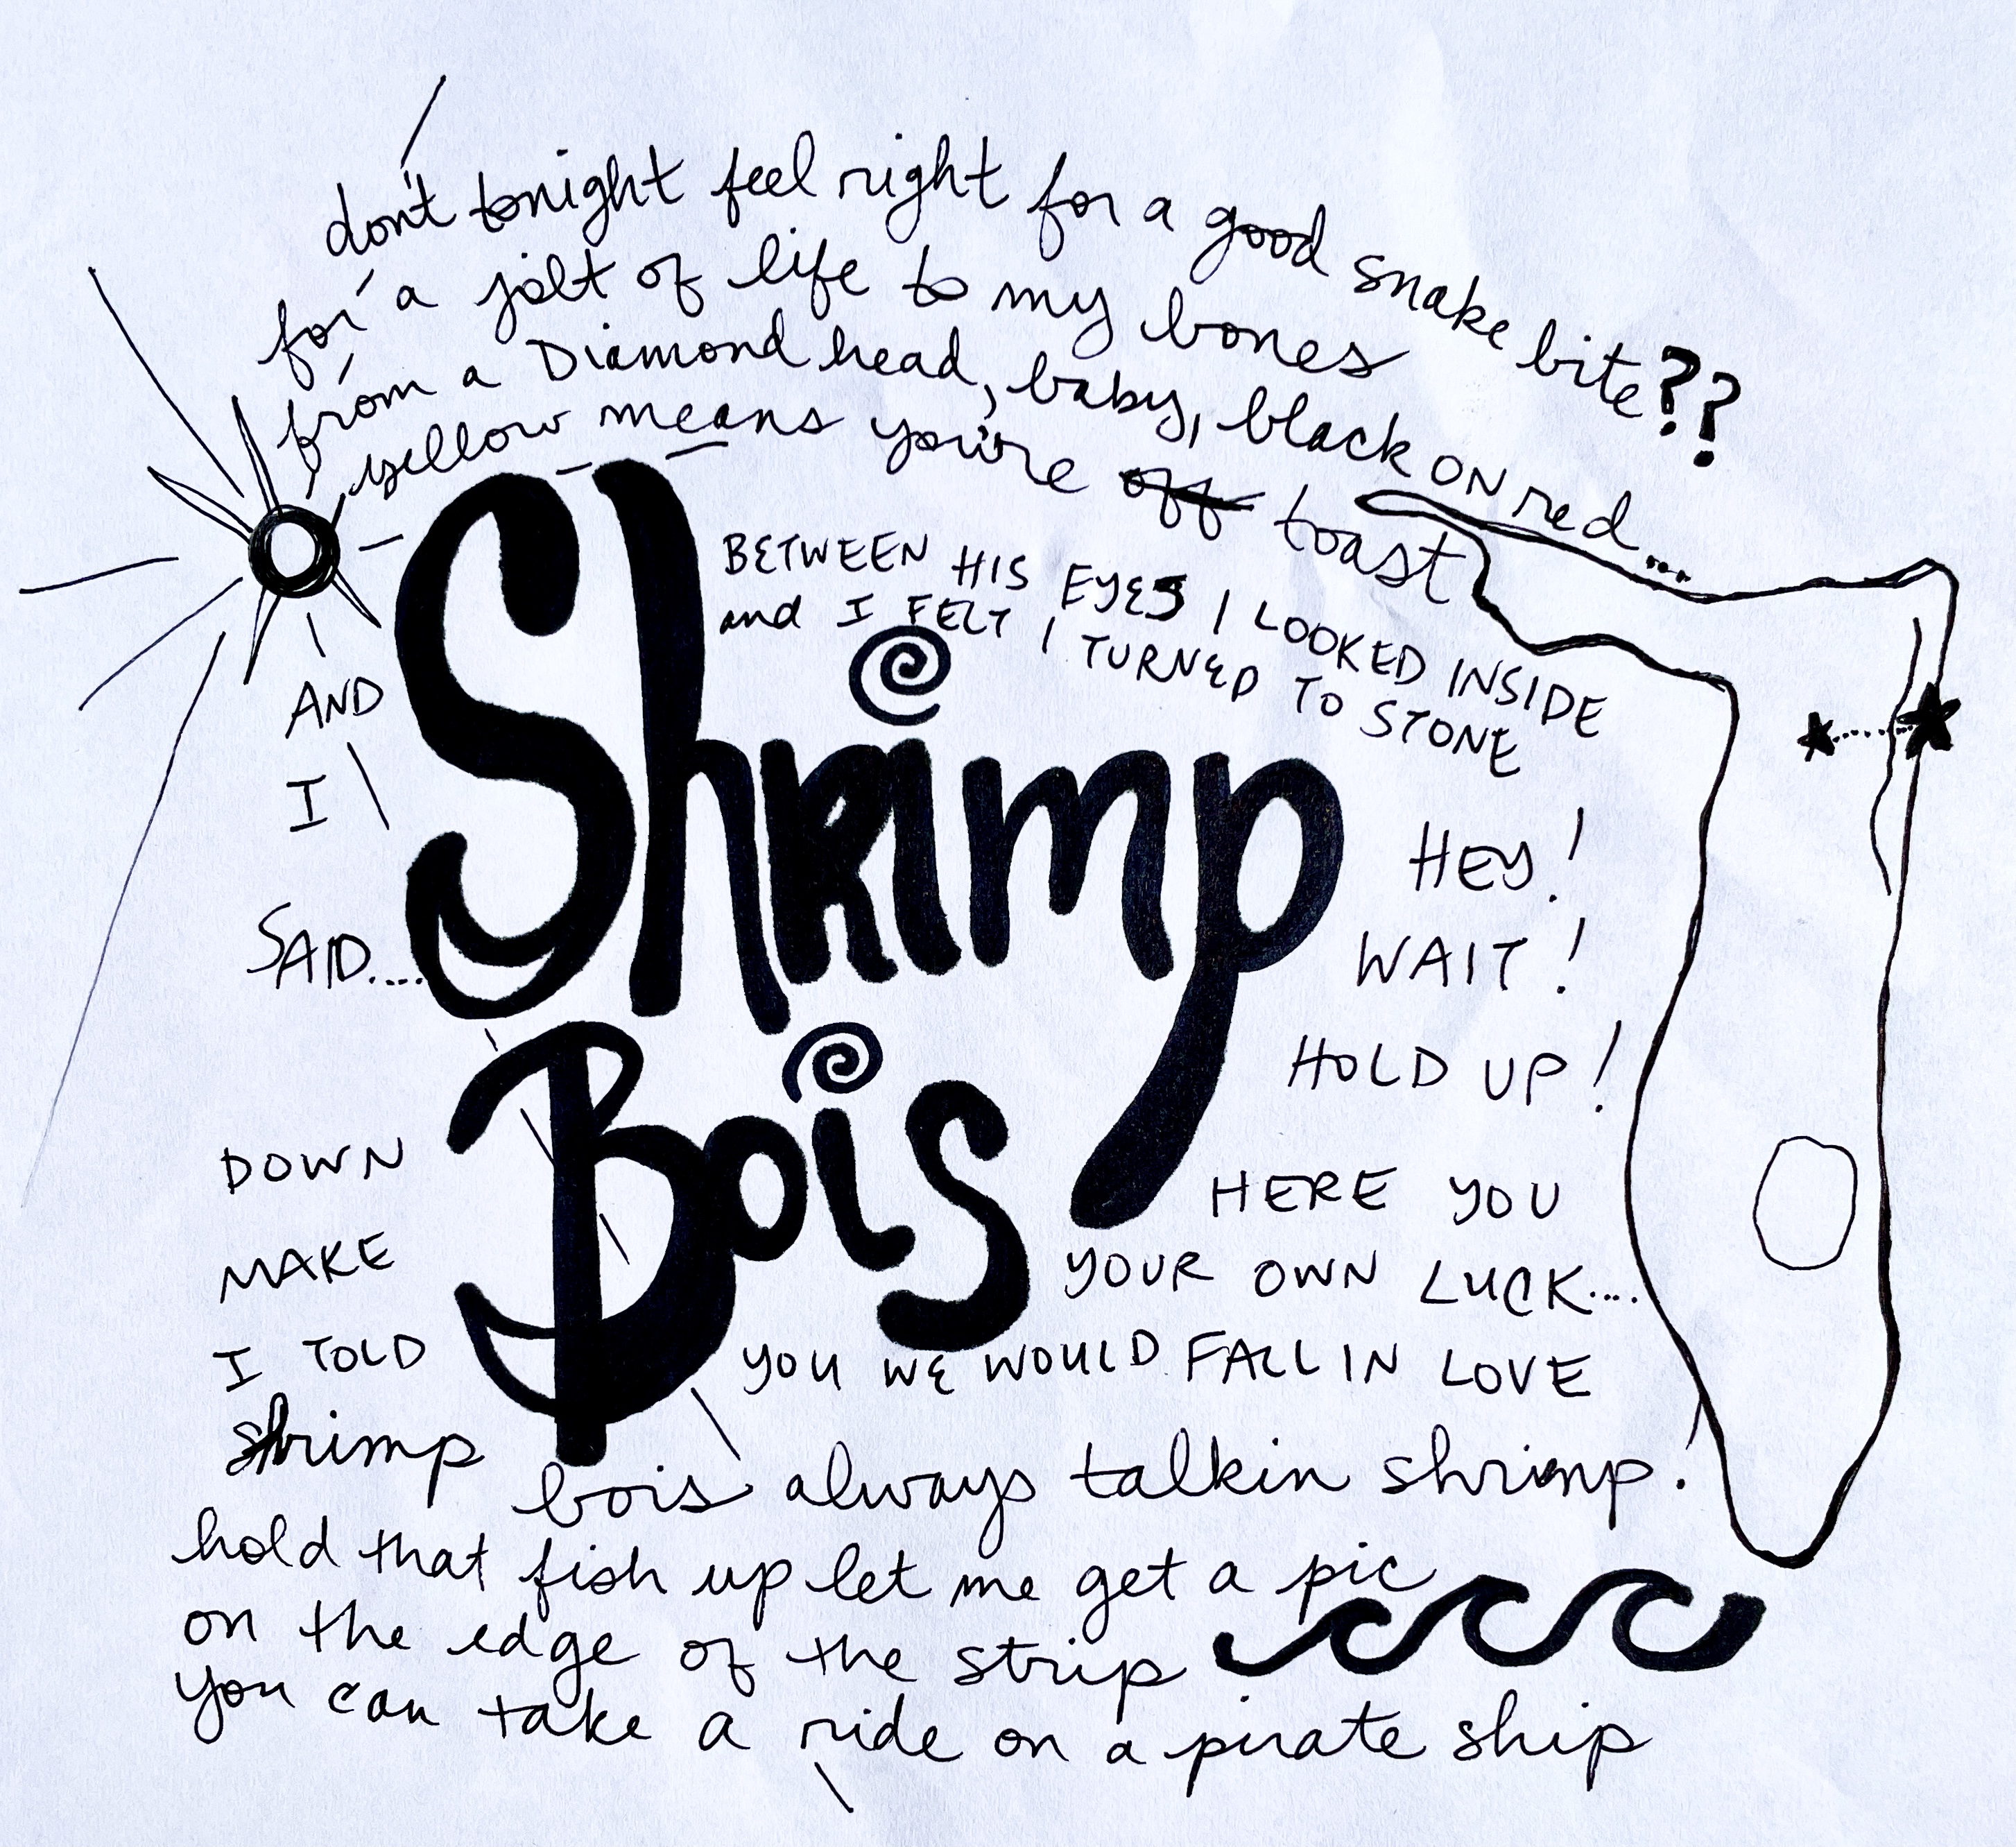 don't tonight feel right for a good snake bite??
for a jolt of life to my bones
from a Diamond head, baby, black ON red...
yellow means you're off toast
BETWEEN HIS EYES I LOOKED INSIDE
and I FELT I TURNED TO STONE
AND
I
SAID....
Shrimp
Bois
HEY!
WAIT!
HOLD UP!
DOWN HERE YOU
MAKE YOUR OWN LUCK....
I TOLD YOU WE WOULD FALL IN LOVE
shrimp bois always talkin shrimp.
hold that fish up let me get a pic
on the edge of the strip
you can take a ride on a pirate ship